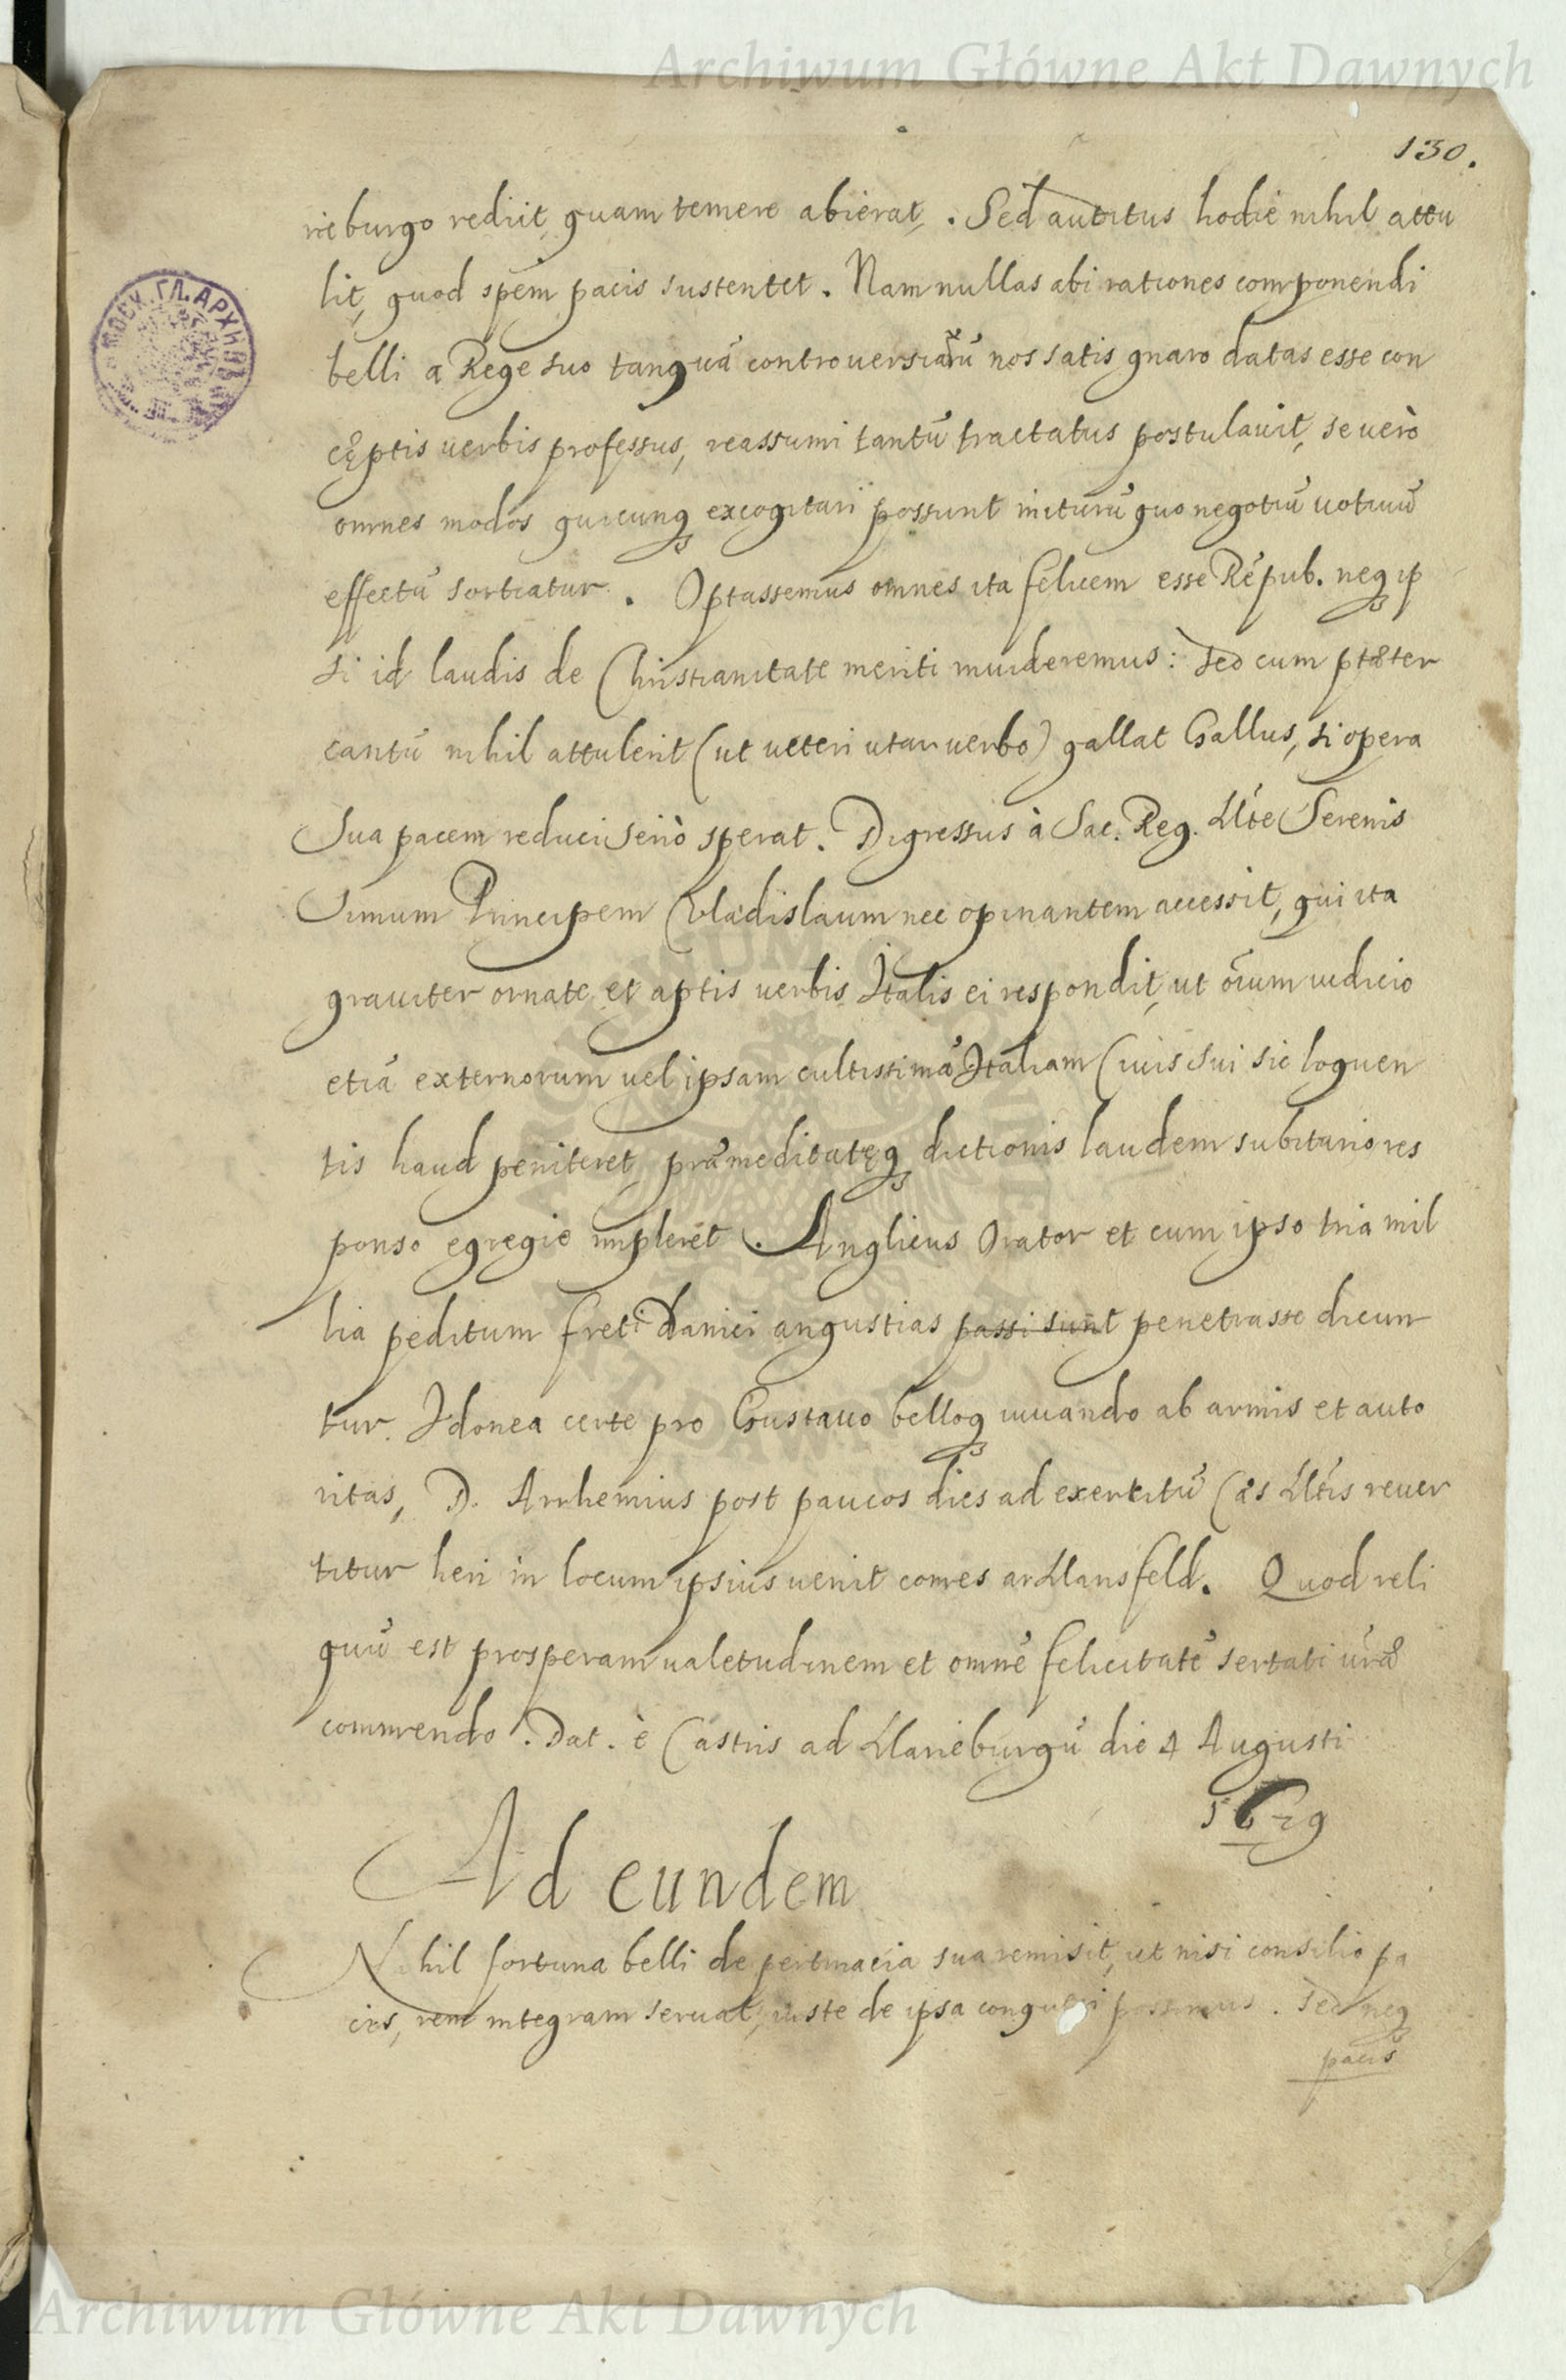 Archiwum Główne Akt Dawnych
130.
rieburgo rediit, quam temere abierat. Sed auditus hodie nihil attu
lit, quod spem pacis sustentet. Nam nullas abi rationes componendi
belli a Rege suo tanquã controversiarũ nos satis gnaro datas esse con
cęptis verbis professus, reassumi tantũ tractatus postulavit, se verò
omnes modos quicunq excogitari possunt initurũ quo negotiũ votivũ
effectũ sortiatur. Optassemus omnes ita felicem esse Rẽpub. neq ip
si id laudis de Christianitate meriti invideremus: sed cum pręter
cantũ nihil attulerit (ut veteri utar verbo) gallat Gallus, si opera
Sua pacem reduci Seriò sperat. Digressus à Sac. Reg. Mte Serenis
Simum Principem Vladislaum nec opinantem accessit, qui ita
graviter ornate et aptis verbis Italis ei respondit, ut oĩum iudicio
etiã externorum vel ipsam cultissimã Italiam Civis sui sic loquen
tis haud peniteret, præmeditatęq dictionis laudem subitario res
ponso egregie impleret. Anglicus Orator et cum ipso tria mil
lia peditum freti Danici angustias passi sunt penetrasse dicun
tur. Idonea certe pro Gustavo belloq iuvando ab armis et auto
ritas, D. Arnhemius post paucos dies ad exercitũ Cæs Mtis rever
titur heri in locum ipsius venit comes a Mansfeld. Quod reli
quũ est prosperam valetudinem et omnẽ felicitatẽ sertati vrã
commendo. Dat. è Castris ad Marieburgũ die 4 Augusti
1629
Ad eundem
Nihil fortuna belli de pertinacia sua remisit, ut nisi consilio pa
cis, rem integram servat, iuste de ipsa conqueri possimus. Sed neq
pacis
Archiwum Główne Akt Dawnych